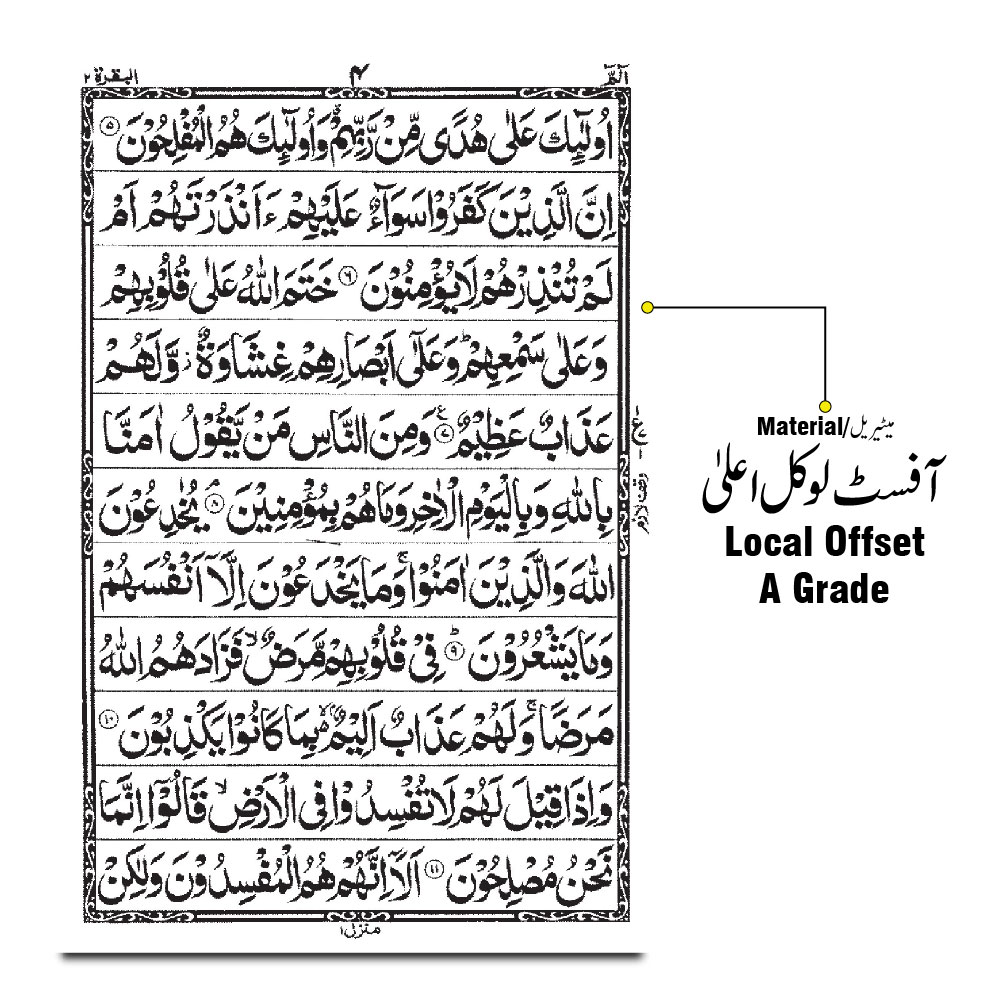 الٓمّٓ ۴ البقرة ۲
اُولٰٓئِكَ عَلٰى هُدًى مِّنْ رَّبِّهِمْ ۗ وَاُولٰٓئِكَ هُمُ الْمُفْلِحُوْنَ ۝۵
اِنَّ الَّذِيْنَ كَفَرُوْا سَوَآءٌ عَلَيْهِمْ ءَاَنْذَرْتَهُمْ اَمْ
لَمْ تُنْذِرْهُمْ لَا يُؤْمِنُوْنَ ۝۶ خَتَمَ اللّٰهُ عَلٰى قُلُوْبِهِمْ
وَعَلٰى سَمْعِهِمْ ؕ وَعَلٰٓى اَبْصَارِهِمْ غِشَاوَةٌ ز وَّلَهُمْ
عَذَابٌ عَظِيْمٌ ۝۷ ع وَمِنَ النَّاسِ مَنْ يَّقُوْلُ اٰمَنَّا
بِاللّٰهِ وَبِالْيَوْمِ الْاٰخِرِ وَمَا هُمْ بِمُؤْمِنِيْنَ ۝۸ۘ يُخٰدِعُوْنَ
اللّٰهَ وَالَّذِيْنَ اٰمَنُوْا ۚ وَمَا يَخْدَعُوْنَ اِلَّآ اَنْفُسَهُمْ
وَمَا يَشْعُرُوْنَ ۝۹ؕ فِىْ قُلُوْبِهِمْ مَّرَضٌ ۙ فَزَادَهُمُ اللّٰهُ
مَرَضًا ۚ وَلَهُمْ عَذَابٌ اَلِيْمٌ ۢ ۙ بِمَا كَانُوْا يَكْذِبُوْنَ ۝۱۰
وَاِذَا قِيْلَ لَهُمْ لَا تُفْسِدُوْا فِى الْاَرْضِ ۙ قَالُوْٓا اِنَّمَا
نَحْنُ مُصْلِحُوْنَ ۝۱۱ اَلَآ اِنَّهُمْ هُمُ الْمُفْسِدُوْنَ وَلٰكِنْ
منزل ۱
ع
وقف لازم
Material/میٹیریل
آفسٹ لوکل اعلیٰ
Local Offset
A Grade